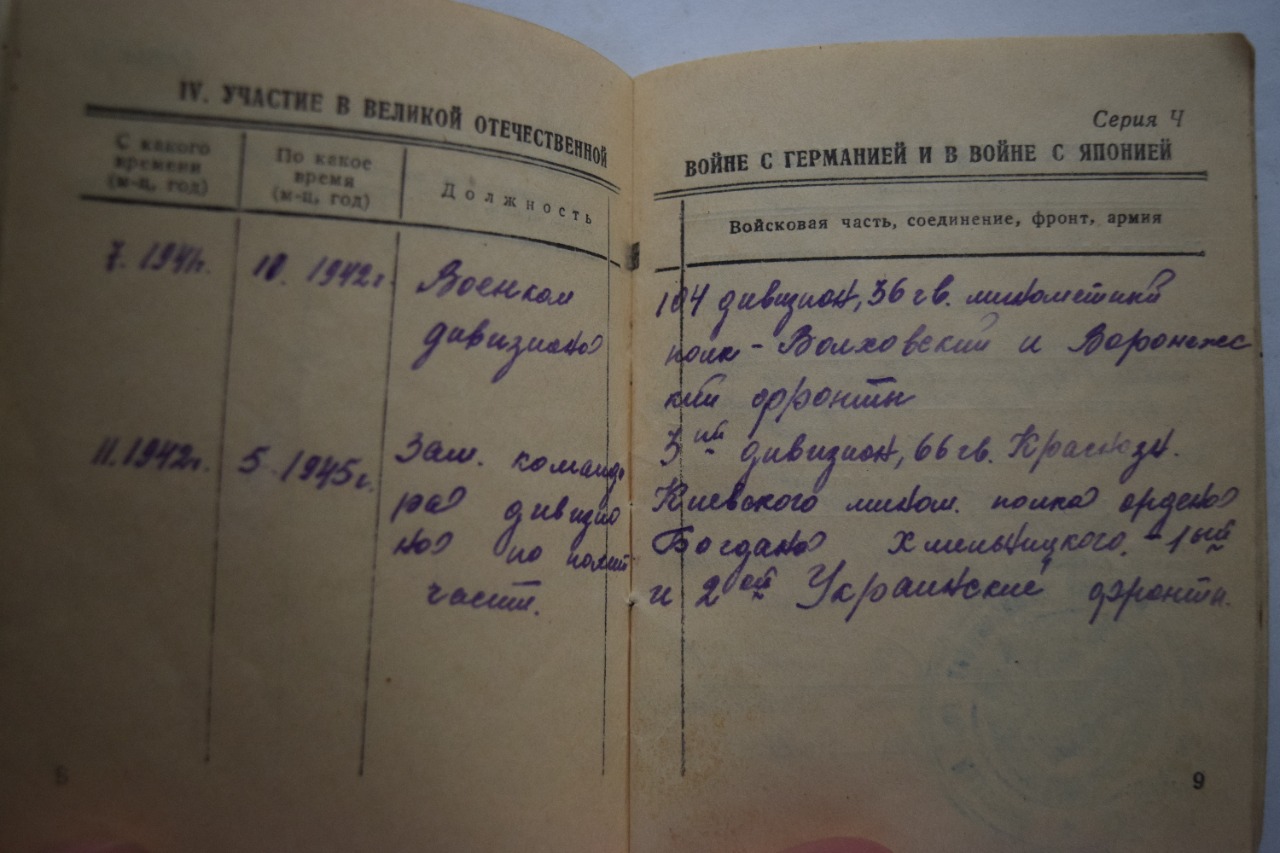 IV. УЧАСТИЕ В ВЕЛИКОЙ ОТЕЧЕСТВЕННОЙ
С какого
времени
(м-ц, год)
По какое
время
(м-ц, год)
Должность
7. 1941г.
10. 1942г.
Военком
дивизиона
11. 1942г.
5. 1945г.
Зам. команди
ра дивизио
на по полит
части.
Серия Ч
ВОЙНЕ С ГЕРМАНИЕЙ И В ВОЙНЕ С ЯПОНИЕЙ
Войсковая часть, соединение, фронт, армия
104 дивизион, 36 гв. минометный
полк - Волховский и Воронежс
кий фронты
3ий дивизион, 66 гв. Краснозн.
Киевского мином. полка ордена
Богдана Хмельницкого. - 1ый
и 2ой Украинские фронты.
9